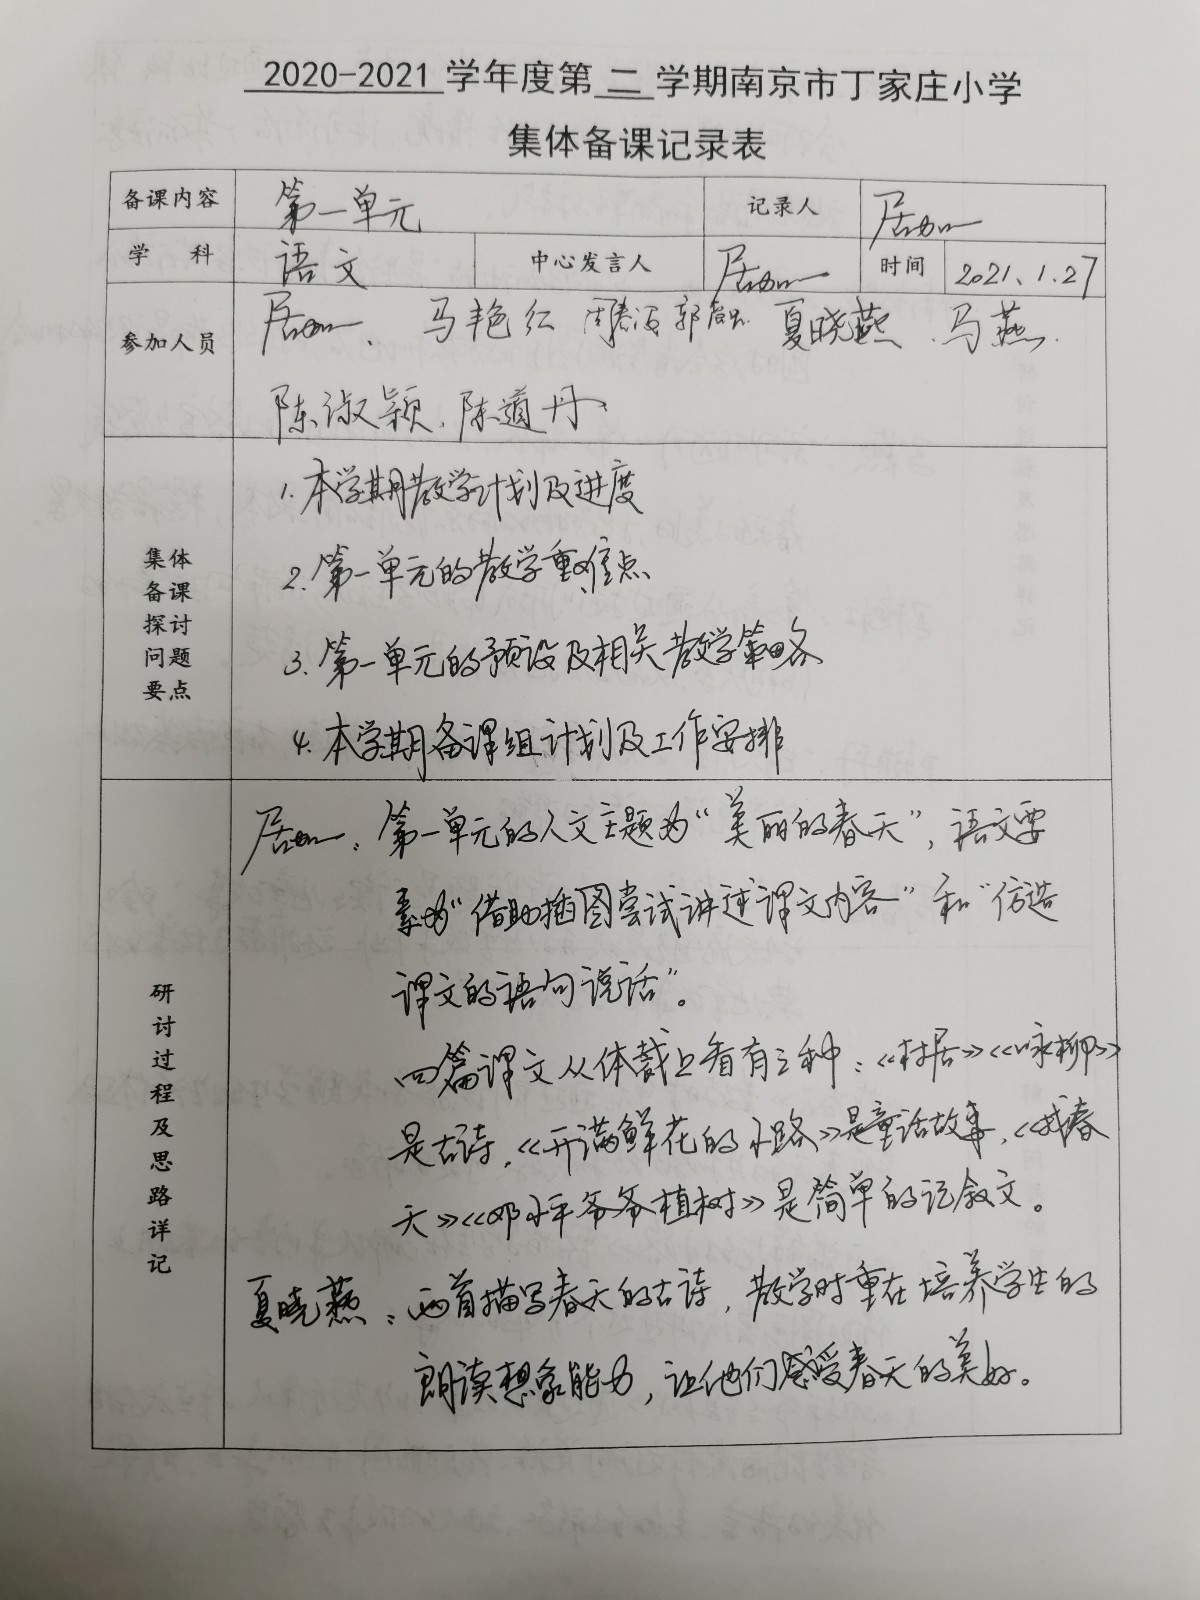 2020-2021 学年度第 二 学期南京市丁家庄小学
集体备课记录表
备课内容 第一单元 记录人 居
学 科 语文 中心发言人 居 时间 2021、1.27
参加人员 居 、马艳红 郭 夏晓燕、马燕、
陈淑颖、陈道丹
集体
备课
探讨
问题
要点
1.本学期教学计划及进度
2.第一单元的教学重、难点
3.第一单元的预设及相关教学策略
4.本学期备课组计划及工作安排
研
讨
过
程
及
思
路
详
记
居 ：第一单元的人文主题为“美丽的春天”，语文要
素为“借助插图尝试讲述课文内容”和“仿造
课文的语句说话”。
四篇课文从体裁上看有三种：《村居》《咏柳》
是古诗，《开满鲜花的小路》是童话故事，《找春
天》《邓小平爷爷植树》是简单的记叙文。
夏晓燕：两首描写春天的古诗，教学时重在培养学生的
朗读想象能力，让他们感受春天的美好。